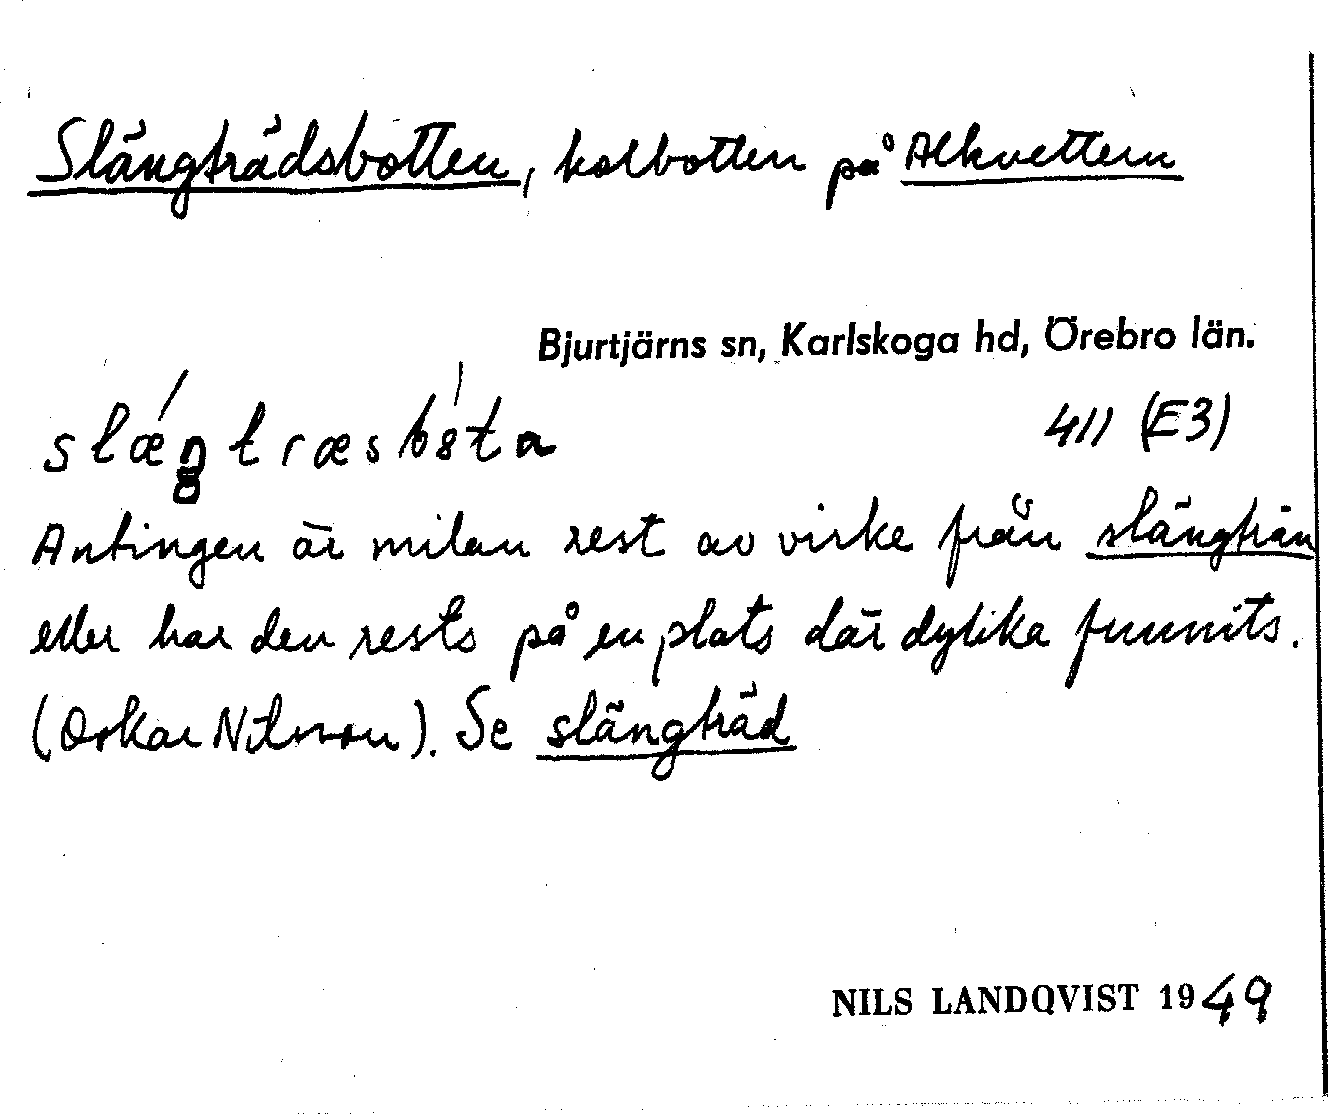 Slängträdsbotten, kolbotten på Alkvettern
Bjurtjärns sn, Karlskoga hd, Örebro län.
411 (E3)
Antingen är milan rest av virke från slängträn
eller har den rests på en plats där dylika funnits.
(Oskar Nilsson). Se slängträd
NILS LANDQVIST 1949